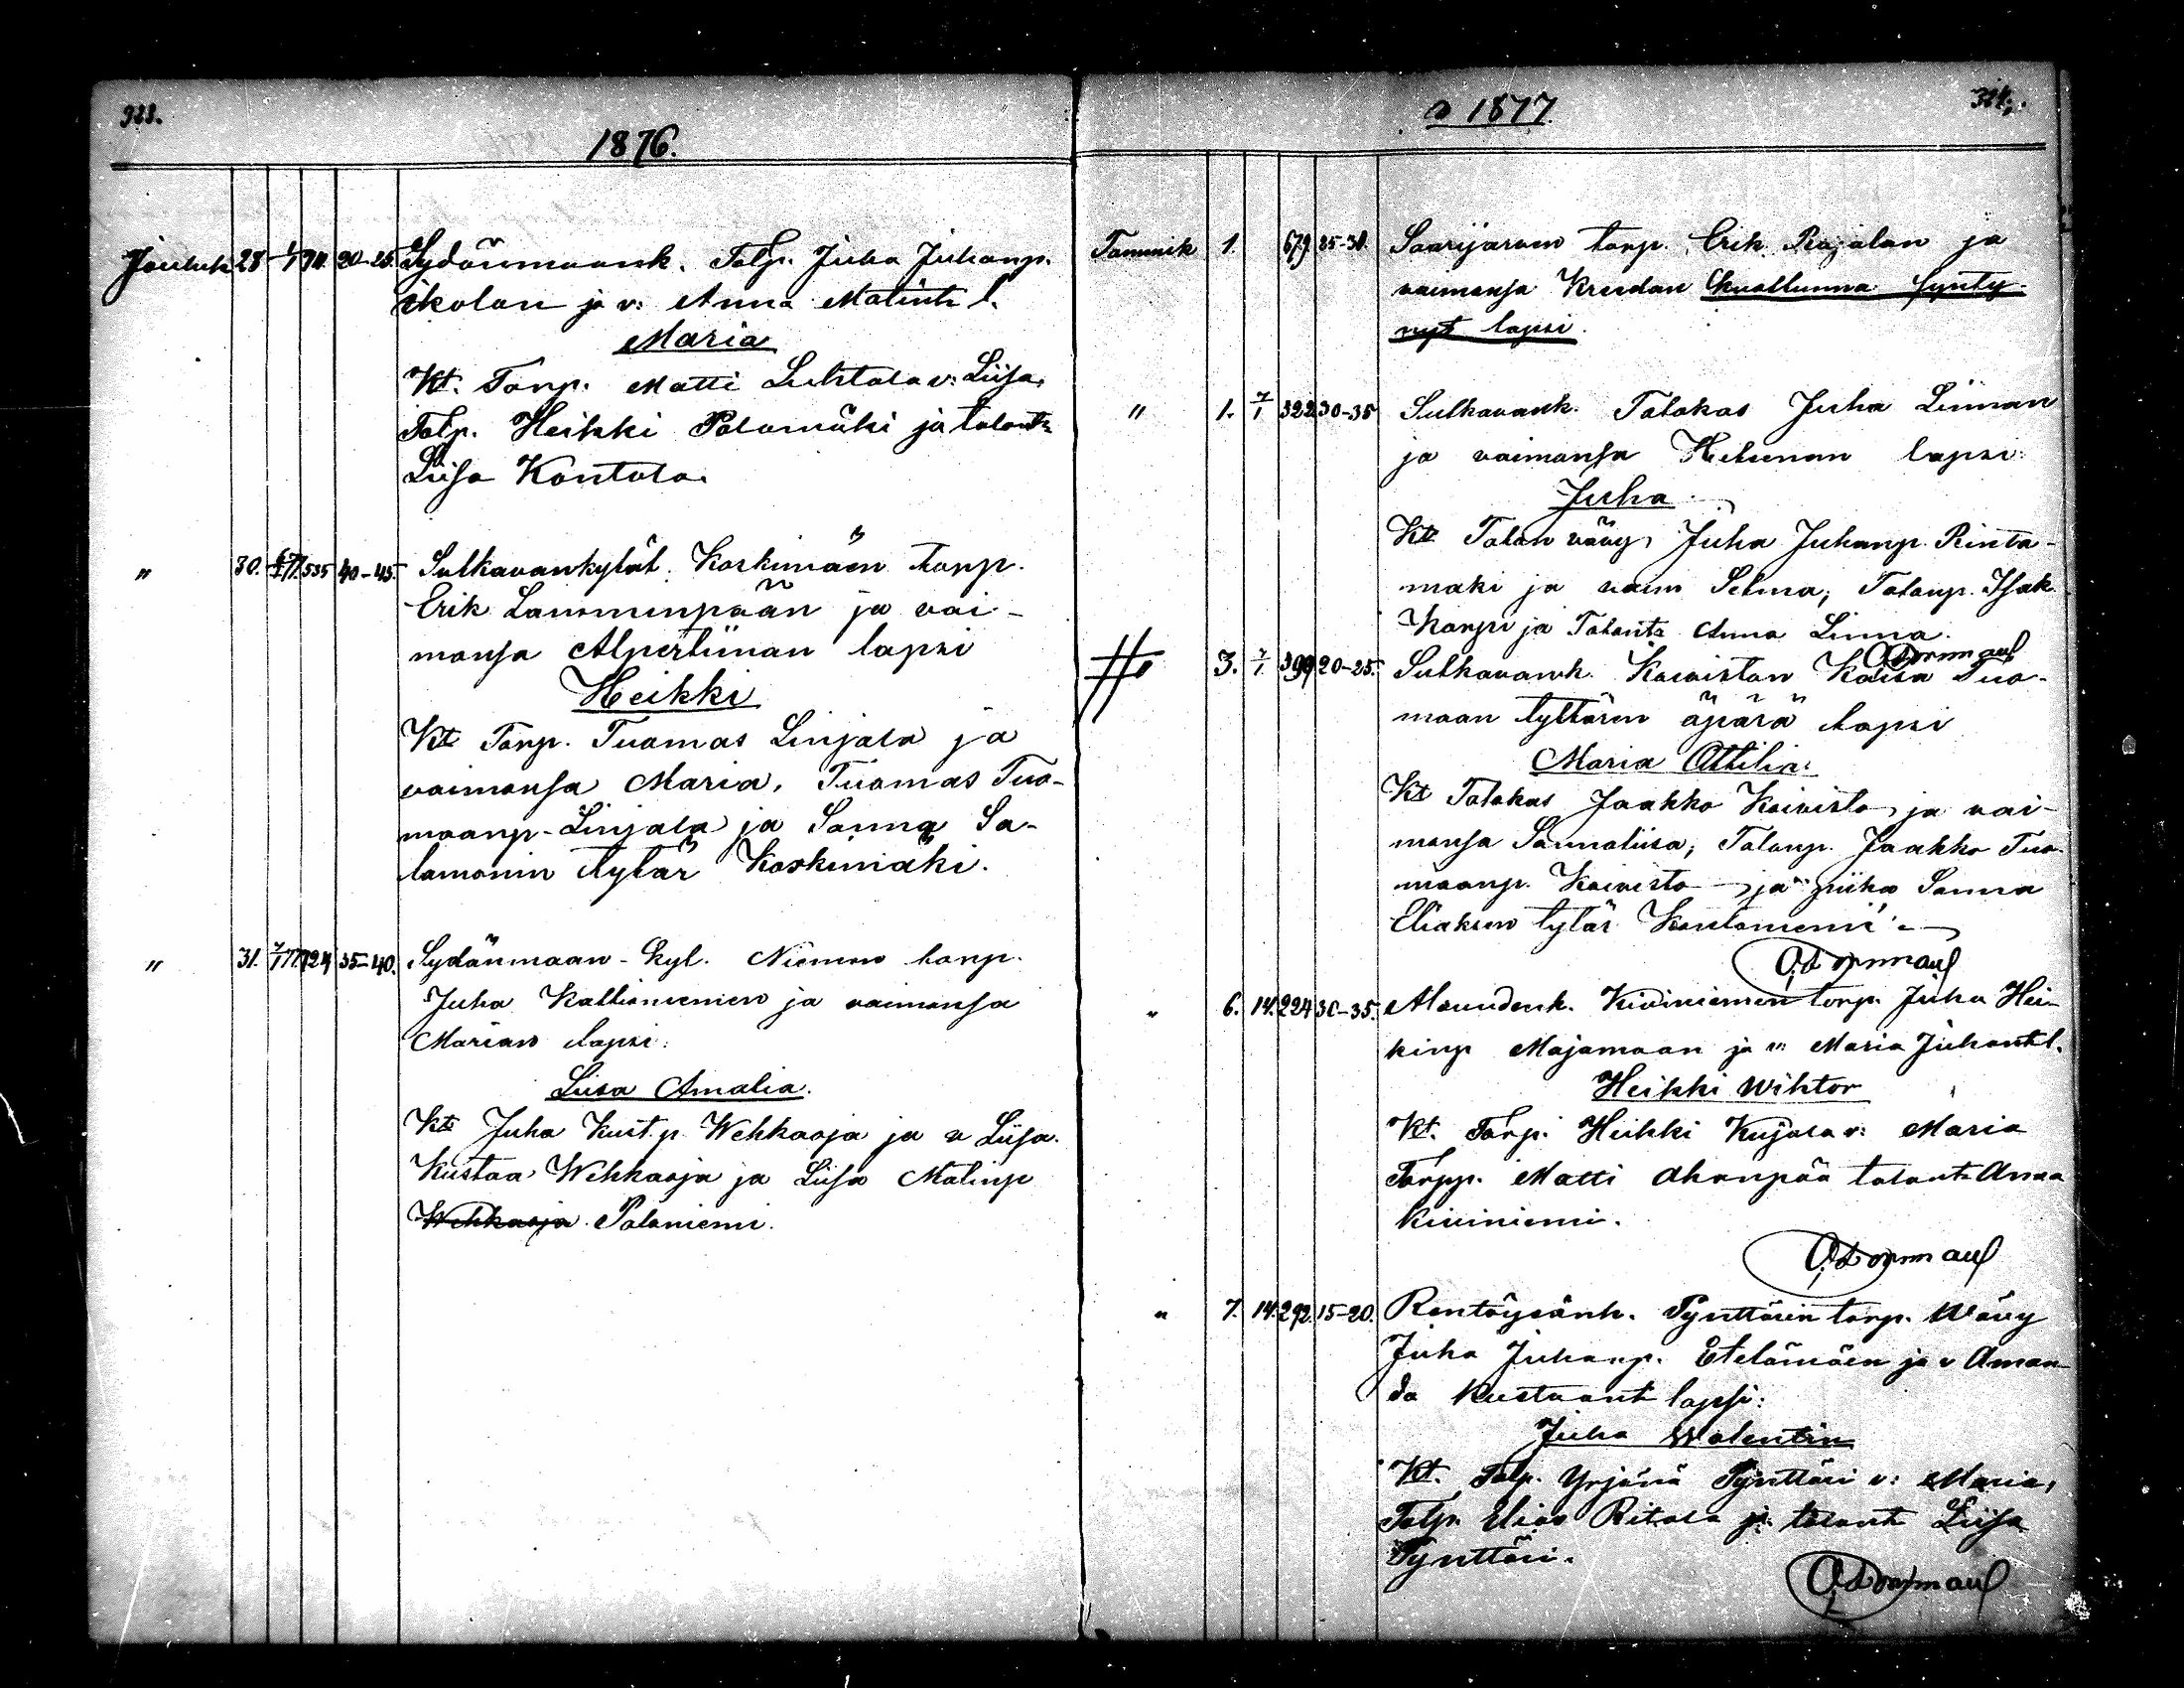 323.
1876.
Jouluk 28 1/1 711 20-25. Sydänmaank. Talp. Juha Juhanp.
ikolan ja v: Anna Matint l.
Maria
Kt. Torp. Matti Luhtala v: Liisa,
Talp. Heikki Palomäki ja talont.
Liisa Kontola.
" 30. 6/1 77. 535 40-45. Sulkavankylät. Koskimäen torp.
Erik Lamminpään ja vai-
monsa Alpertiinan lapsi
Heikki
Kt Torp. Tuomas Linjala ja
vaimonsa Maria, Tuomas Tuo-
maanp. Linjala ja Sanna Sa-
lamonin tytär Koskimäki.
" 31. 7/1 77. 724 35-40. Sydänmaan-kyl. Niemen torp.
Juha Kallioniemen ja vaimonsa
Marian lapsi:
Liisa Amalia.
Kt Juha Kust.p. Wehkaoja ja v Liisa.
Kustaa Wehkaoja ja Liisa Matinp
Wehkaoja Palaniemi.
324.
1877
Tammik 1. 679. 25-30. Saarijärven torp. Erik Rajalan ja
vaimonsa Kreedan kuollunna synty-
nyt lapsi.
" 1. 7/1 322 30-35 Sulkavank. Talokas Juha Linnan
ja vaimonsa Helenan lapsi:
Juha
Kt Talon vävy Juha Juhanp. Rinta-
mäki ja vaim Selma; Talonp. Isak
Karpi ja Talont. Anna Linna.
3. 7/1 399 20-25. Sulkavank. Koiviston Kaisa Tuo-
maan tyttären äpärä lapsi
Maria Ottilia
Kt Talokas Jaakko Koivisto ja vai-
monsa Sannaliisa; Talonp. Jaakko Tuo-
maanp. Koivisto ja piika Sanna
Eliaksen tytär Kontoniemi
" 6. 14. 224 30-35. Alavudenk. Kiviniemen torp. Juha Hei-
kinp Majamaan ja v: Maria Juhant l.
Heikki Wihtor
Kt. Torp. Heikki Kujala v: Maria
Torpp. Matti Ahonpää talont. Anna
Kiviniemi.
" 7. 14. 292. 15-20. Rantöysänk. Pynttärin torp. Wävy
Juha Juhanp. Etelämäen ja v Aman-
da Kustaant lapsi:
Juha Walentin
Kt. Talp. Yrjänä Pynttäri v: Maria,
Talp. Elias Ritala ja talont Liisa
Pynttäri.